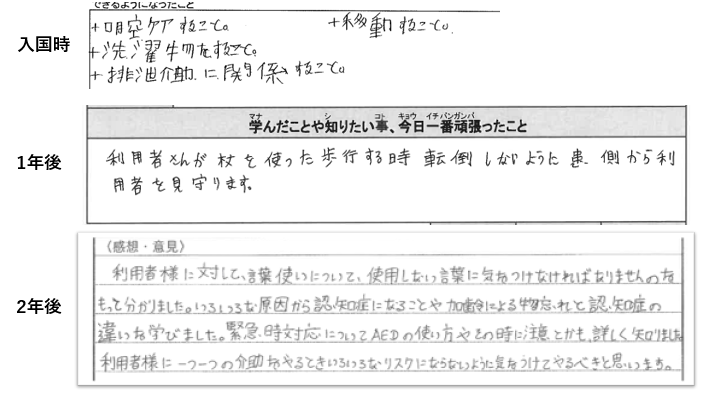 できるようになったこと
入国時
+口腔ケアすること。 +移動すること。
+洗濯物をすること。
+排泄介助に関係すること。
マナ シ コト キョウ イチバンガンバ
学んだことや知りたい事、今日一番頑張ったこと
1年後
利用者さんが杖を使った歩行する時転倒しないように患側から利
用者を見守ります。
〈感想・意見〉
2年後
利用者様に対して、言葉使いについて、使用しない言葉に気をつけなければなりませんのを
もって分かりました。いろいろな原因から認知症になることや加齢による物忘れと認知症の
違いを学びました。緊急時対応についてAEDの使い方やその時に注意とかも、詳しく知りました
利用者様に一つ一つの介助をやるときいろいろなリスクにならないように気をつけてやるべきと思います。